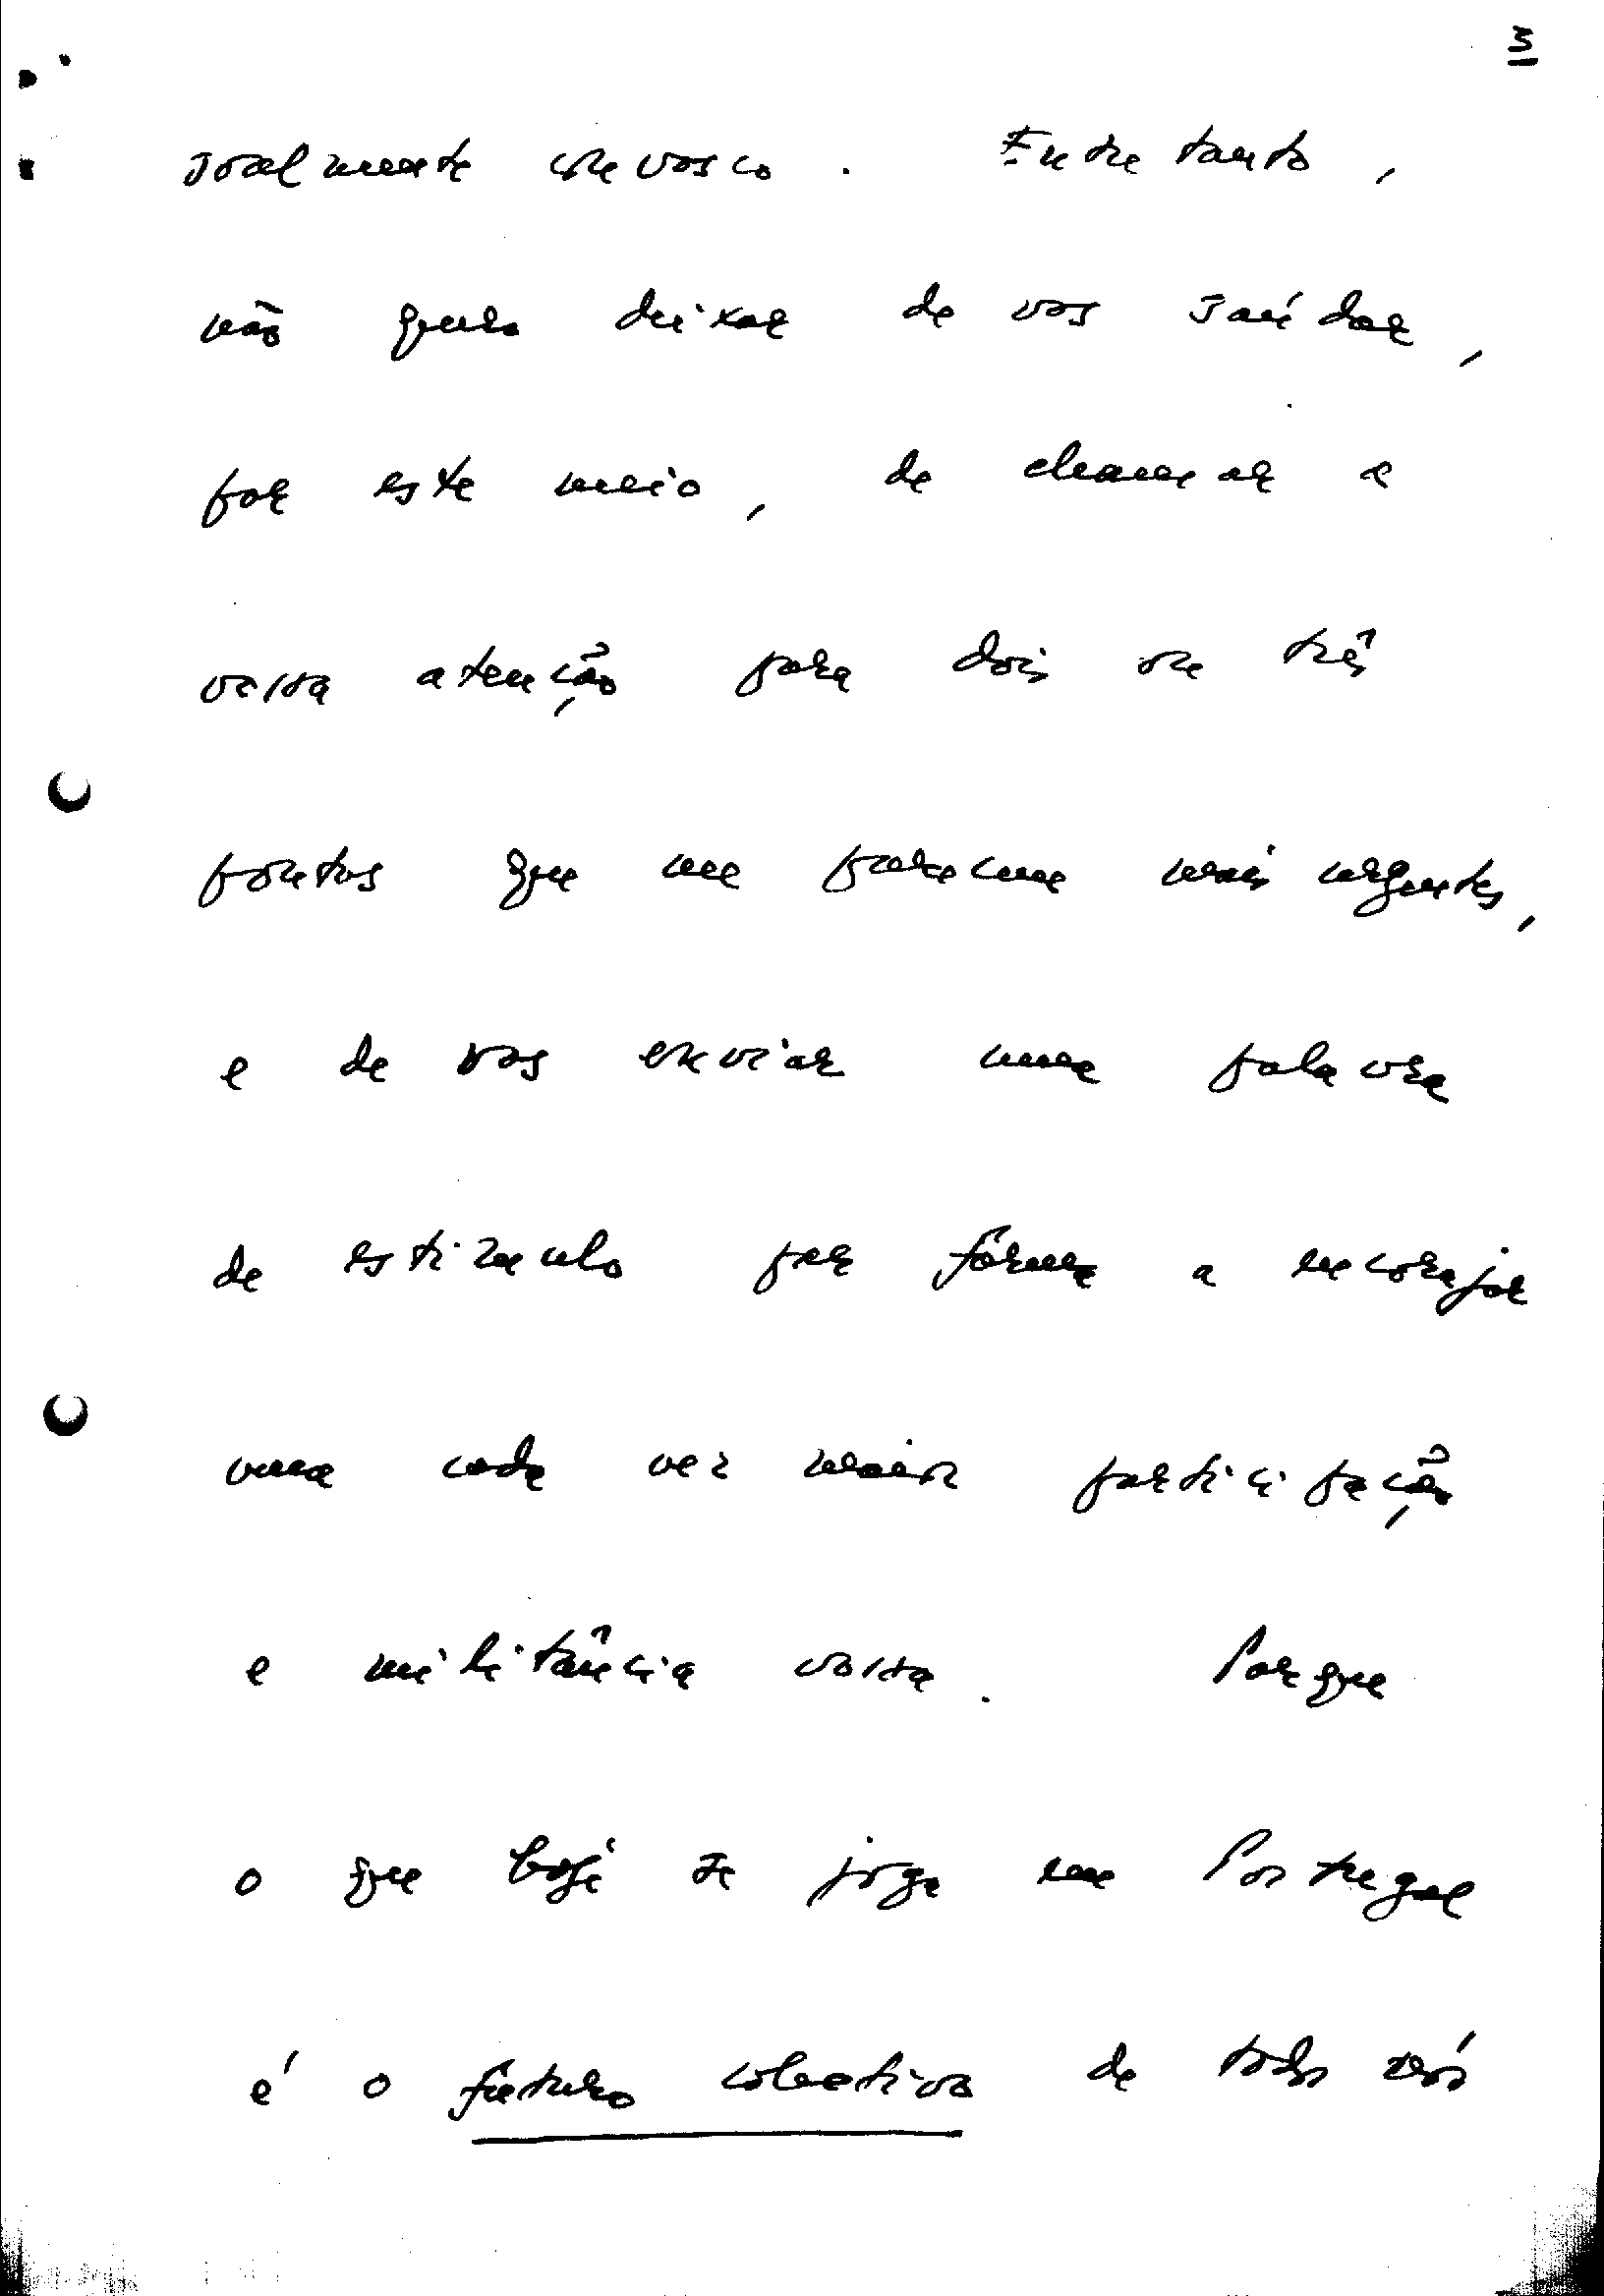 3
soalmente convosco. Entretanto,
não quero deixar de vos saúdar,
por este meio, de chamar a
vossa atenção para dois ou três
pontos que me parecem mais urgentes,
e de vos enviar uma palavra
de estímulo por forma a encorajar
uma cada vez maior participação
e militância vossa. Porque
o que hoje se joga em Portugal
é o futuro colectivo de todos nós